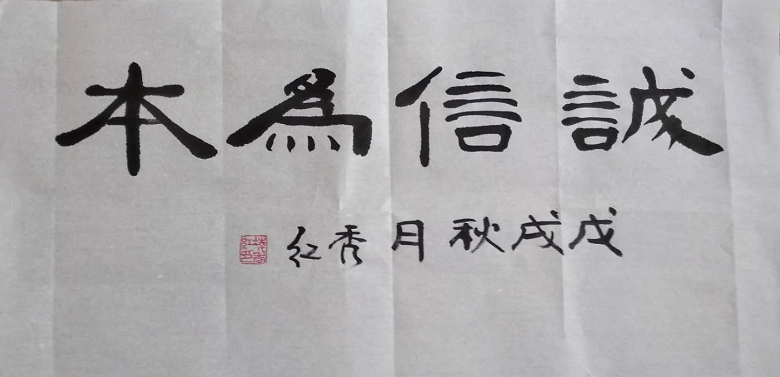 誠信為本
戊戌秋月秀红